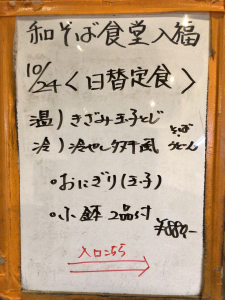 和そば食堂入福
10/24＜日替定食＞
温）きざみ玉子とじ
冷）冷やしタヌキ風
そば
うどん
・おにぎり(玉子)
・小鉢 2品付
¥880-
入口→